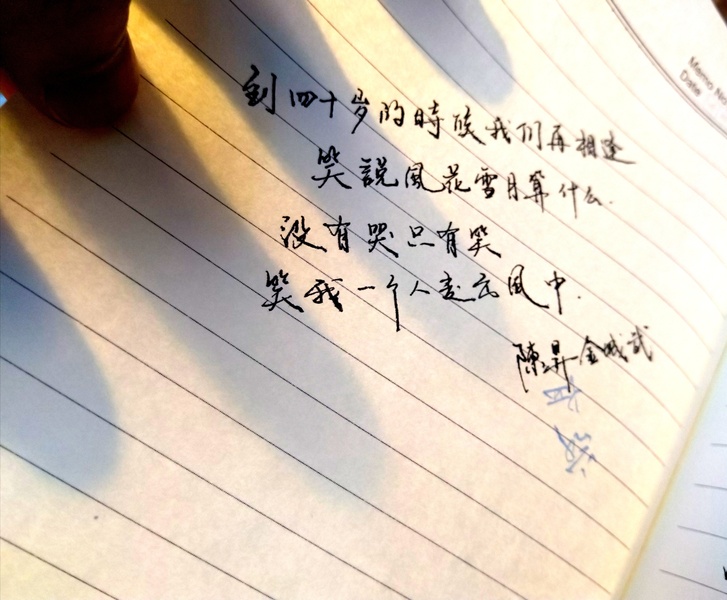 到四十岁的時候我们再相逢
笑説風花雪月算什么.
没有哭只有笑
笑我一个人走在風中.
陳昇 金城武
Memo No
Date